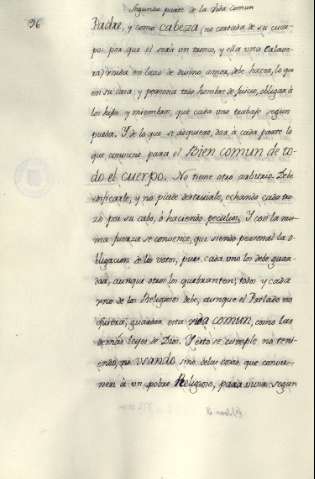 96
Segunda parte de la vida comun
Padre, y como cabeza (no cortada de su cuer-
po; por que el sería un tronco, y ella una calave-
ra) unida en lazo de divino amor, debe hacer, lo que
en su casa, y persona todo hombre de juicio, obligar à
los hijos, y miembros, que cada uno trabaje segun
pueda. Y de lo que se adquiere, dar à cada parte lo
que conviene para el Bien comun de to-
do el cuerpo. No tiene otro arbitrio. Debe
unificarle, y no puede
zo por su cabo, ô haciendo peculios. Y con la mis-
ma fuerza se convence, que siendo personal la o-
bligacion de los votos, pues cada uno los debe guar-
dar, aunque otros los quebranten; todos y cada
uno de los Religiosos debe, aunque el Prelado no
quisiera, guardar esta vida comun, como las
demàs leyes de Dios. Y esto se cumple no teni-
endo, ni usando sino de las cosas que convie-
nen à un pobre Religioso, para vivir segun